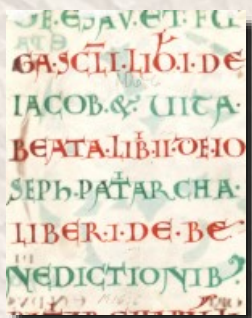 DE.ESAV.ET.FU
GA.SC̅I.LIB̅.I.DE
IACOB.&.UITA.
BEATA.LIB̅.II.DE.IO
SEPH.PAT̅ARCHA.
LIBER.I.DE.BE
NEDICTIONIB